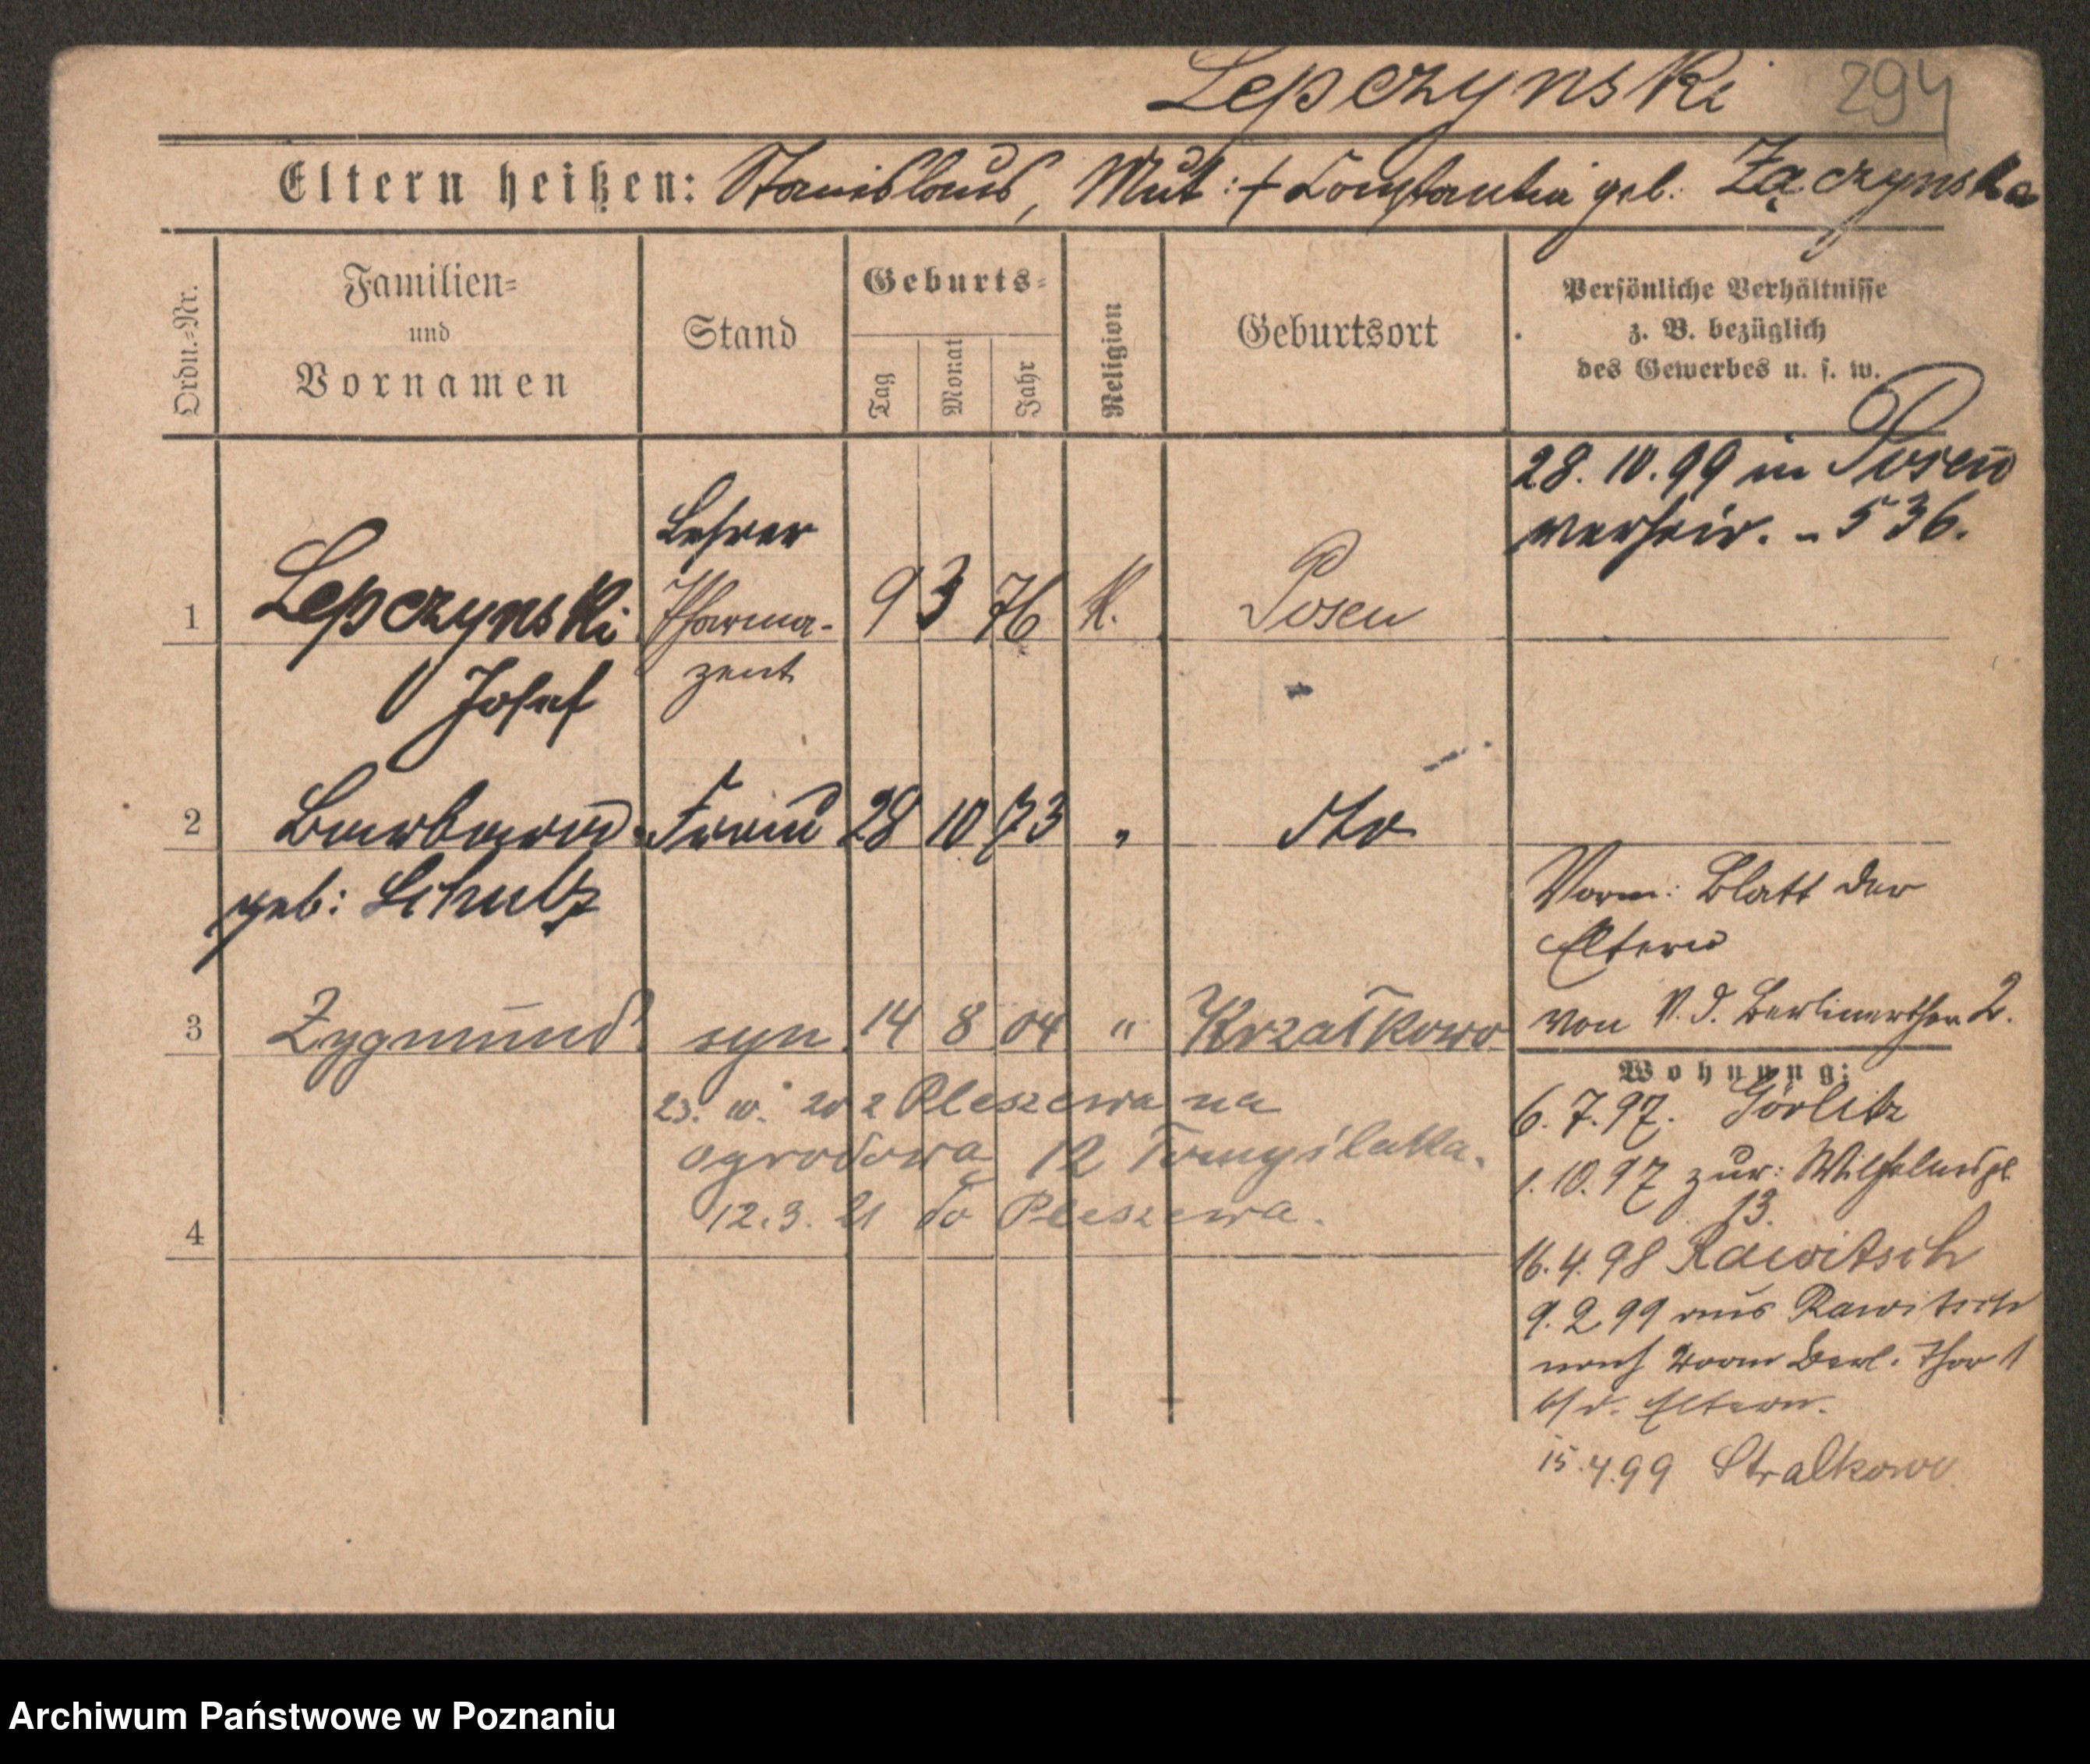 Lepczynski 294
Eltern heißen: Stanislaus, Mutt: + Constantia geb. Zączynska
Ordn.-Nr.
Familien-
und
Vornamen
Stand
Geburts-
Tag
Monat
Jahr
Religion
Geburtsort
Persönliche Verhältnisse
z. B. bezüglich
des Gewerbes u. s. w.
28.10.99 in Posen
verheir. - 536.
Lehrer
1 Lepczynski Pharma- 9 3 76 K. Posen
Josef zeut
2 Barbara Frau 28 10 73 " dto
geb: Schultz
Vorm: Blatt der
Eltern
von V. d. Berlinerthor 2.
3 Zygmund syn 14 8 04 " Krzałkowo
23. 10. 20 z Pleszewa na
ogrodową 12 Tomyślakla.
12.3.21 do Pleszewa.
4
Wohnung:
6.7.97. Görlitz
1.10.97 zur: Wilhelmspl
13.
16.4.98 Rawitsch
9.2 99 aus Rawitsch
nach vorm Berl. Thor 1
b/d. Eltern.
15.4.99 Stralkowo
Archiwum Państwowe w Poznaniu